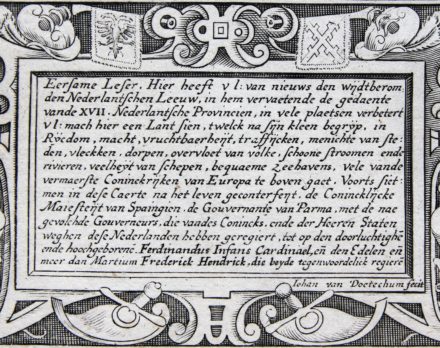 Eersame Leser. Hier heeft v l: van nieuws den wijdtberom
den Nederlantschen Leeuw, in hem vervaetende de gedaente
vande XVII. Nederlantsche Provincien, in vele plaetsen verbetert
vl: mach hier een Lant sien, twelck na sijn kleen begrijp, in
Rijcdom, macht, vruchtbaerheijt, traffijcken, menichte van ste
den, vleckken. dorpen, overvloet van volke, schoone stroomen ende
rivieren, veelheyt van schepen, bequaeme zeehavens, vele vande
vermaerste Conincrijcken van Europa te boven gaet. Voorts siet:
men in dese Caerte na het leven geconterfeyt. de Conincklycke
Maiesteijt van Spaingien. de Gouvernante van Parma. met de nae
gevolchde Gouverneurs, die vandes Conincks. ende der Heeren Staten
weghen dese Nederlanden hebben geregiert, tot op den doorluchtighe
ende hoochgeborene. Ferdinandus Infans Cardinael, en den Edelen en
meer dan Martium Frederick Hendrick, die beyde tegenwoordelick regiere
Iohan van Doetechum fecit